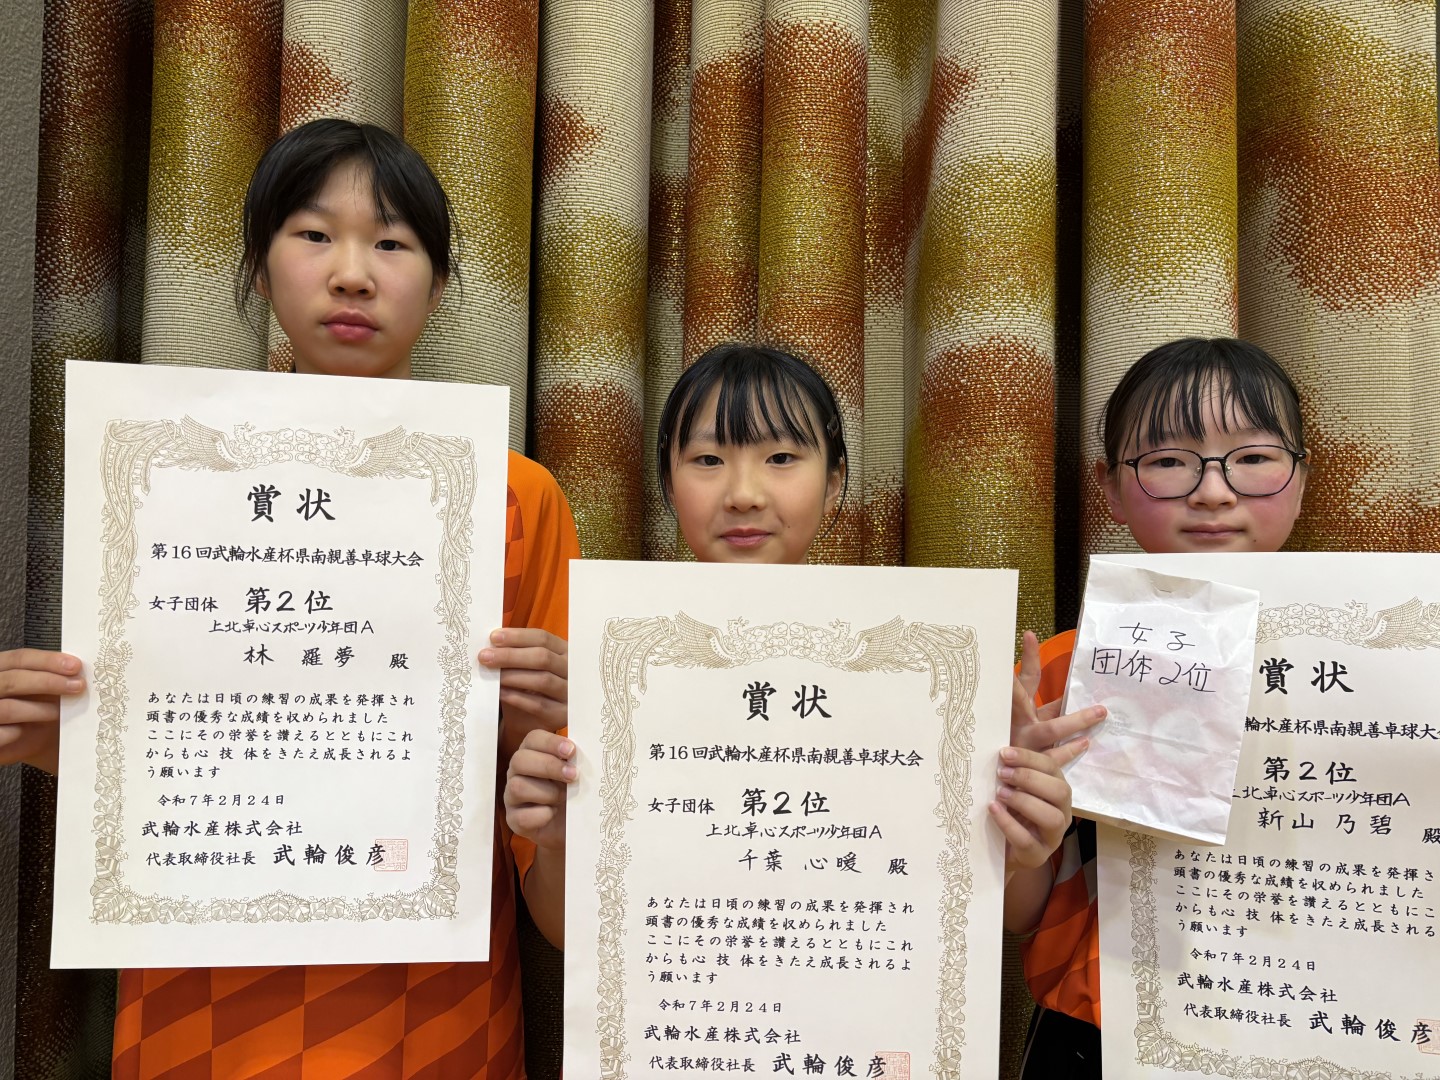 賞状
第16回武輪水産杯県南親善卓球大会
女子団体 第2位
上北卓心スポーツ少年団A
林 羅夢 殿
あなたは日頃の練習の成果を発揮され
頭書の優秀な成績を収められました
ここにその栄誉を讃えるとともにこれ
からも心 技 体をきたえ成長されるよ
う願います
令和7年2月24日
武輪水産株式会社
代表取締役社長 武輪俊彦
賞状
第16回武輪水産杯県南親善卓球大会
女子団体 第2位
上北卓心スポーツ少年団A
千葉 心暖 殿
あなたは日頃の練習の成果を発揮され
頭書の優秀な成績を収められました
ここにその栄誉を讃えるとともにこれ
からも心 技 体をきたえ成長されるよ
う願います
令和7年2月24日
武輪水産株式会社
代表取締役社長 武輪俊彦
女子
団体2位
賞状
輪水産杯県南親善卓球大
第2位
上北卓心スポーツ少年団A
新山 乃碧 殿
あなたは日頃の練習の成果を発揮さ
頭書の優秀な成績を収められました
ここにその栄誉を讃えるとともにこ
からも心 技 体をきたえ成長される
う願います
令和7年2月24日
武輪水産株式会社
代表取締役社長 武輪俊彦